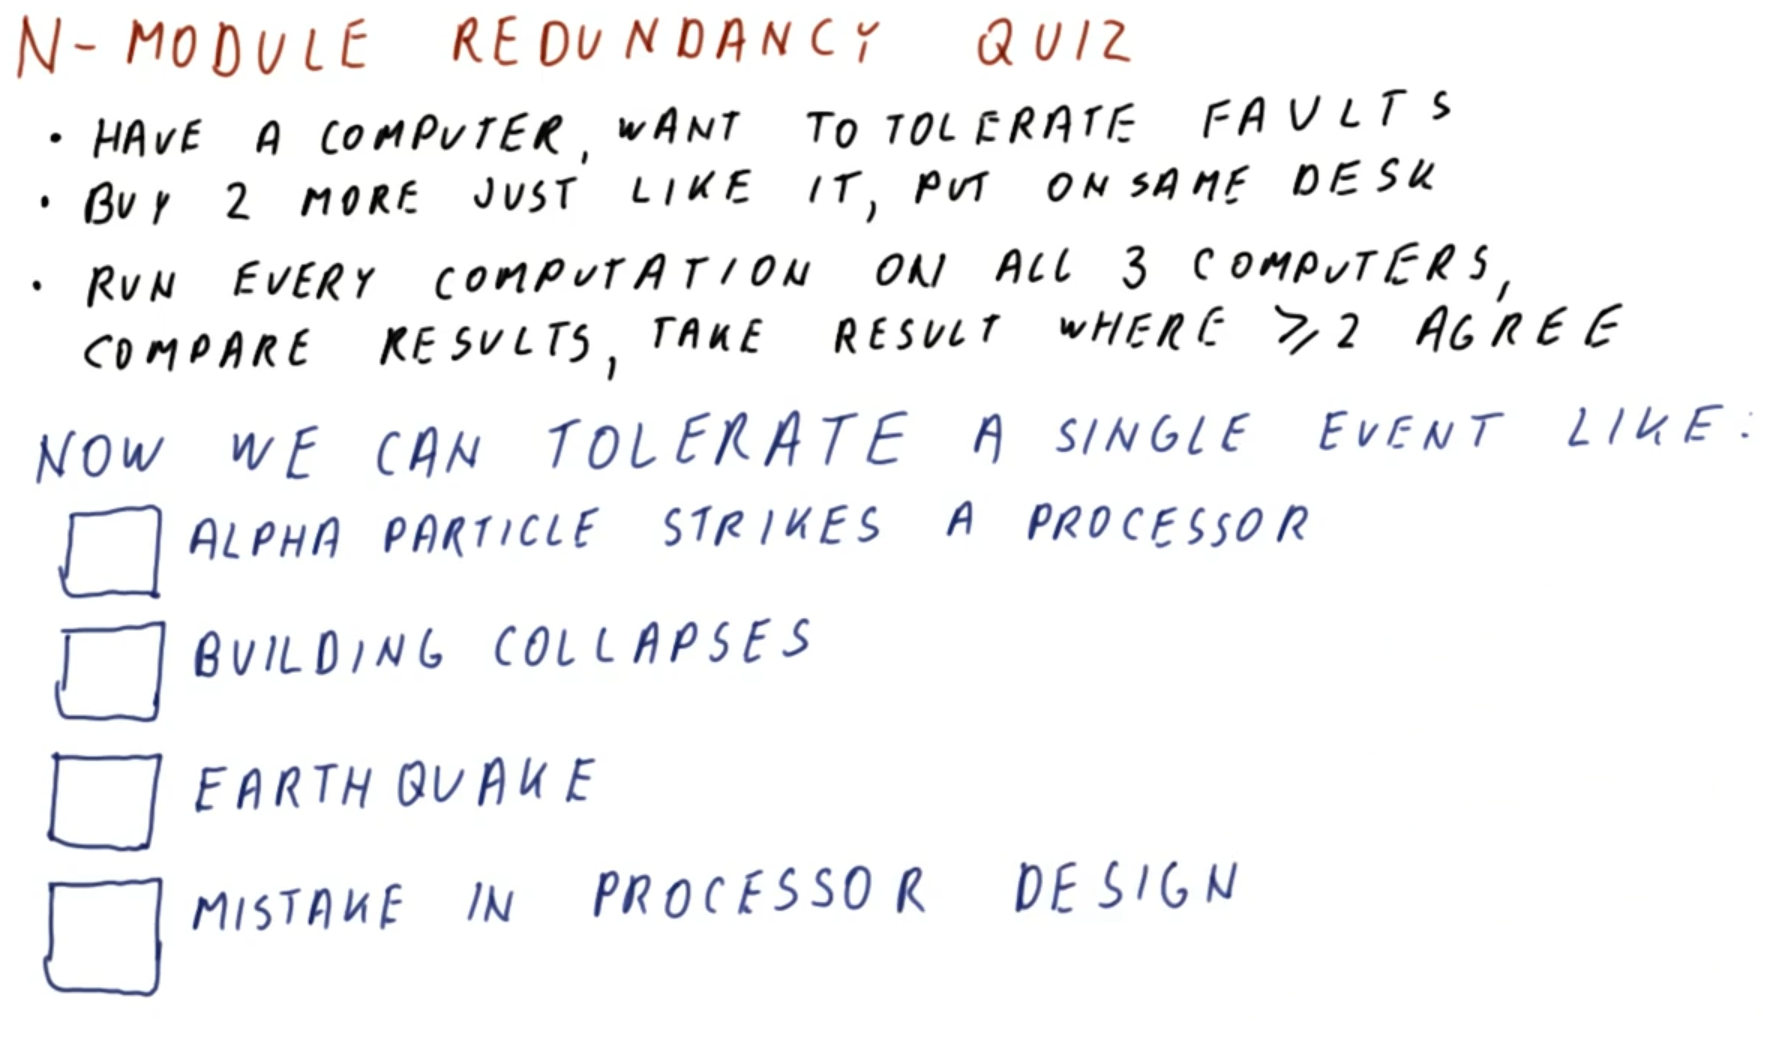 N-MODULE REDUNDANCY QUIZ
• HAVE A COMPUTER, WANT TO TOLERATE FAULTS
• BUY 2 MORE JUST LIKE IT, PUT ON SAME DESK
• RUN EVERY COMPUTATION ON ALL 3 COMPUTERS,
COMPARE RESULTS, TAKE RESULT WHERE ⩾2 AGREE
NOW WE CAN TOLERATE A SINGLE EVENT LIKE:
ALPHA PARTICLE STRIKES A PROCESSOR
BUILDING COLLAPSES
EARTHQUAKE
MISTAKE IN PROCESSOR DESIGN